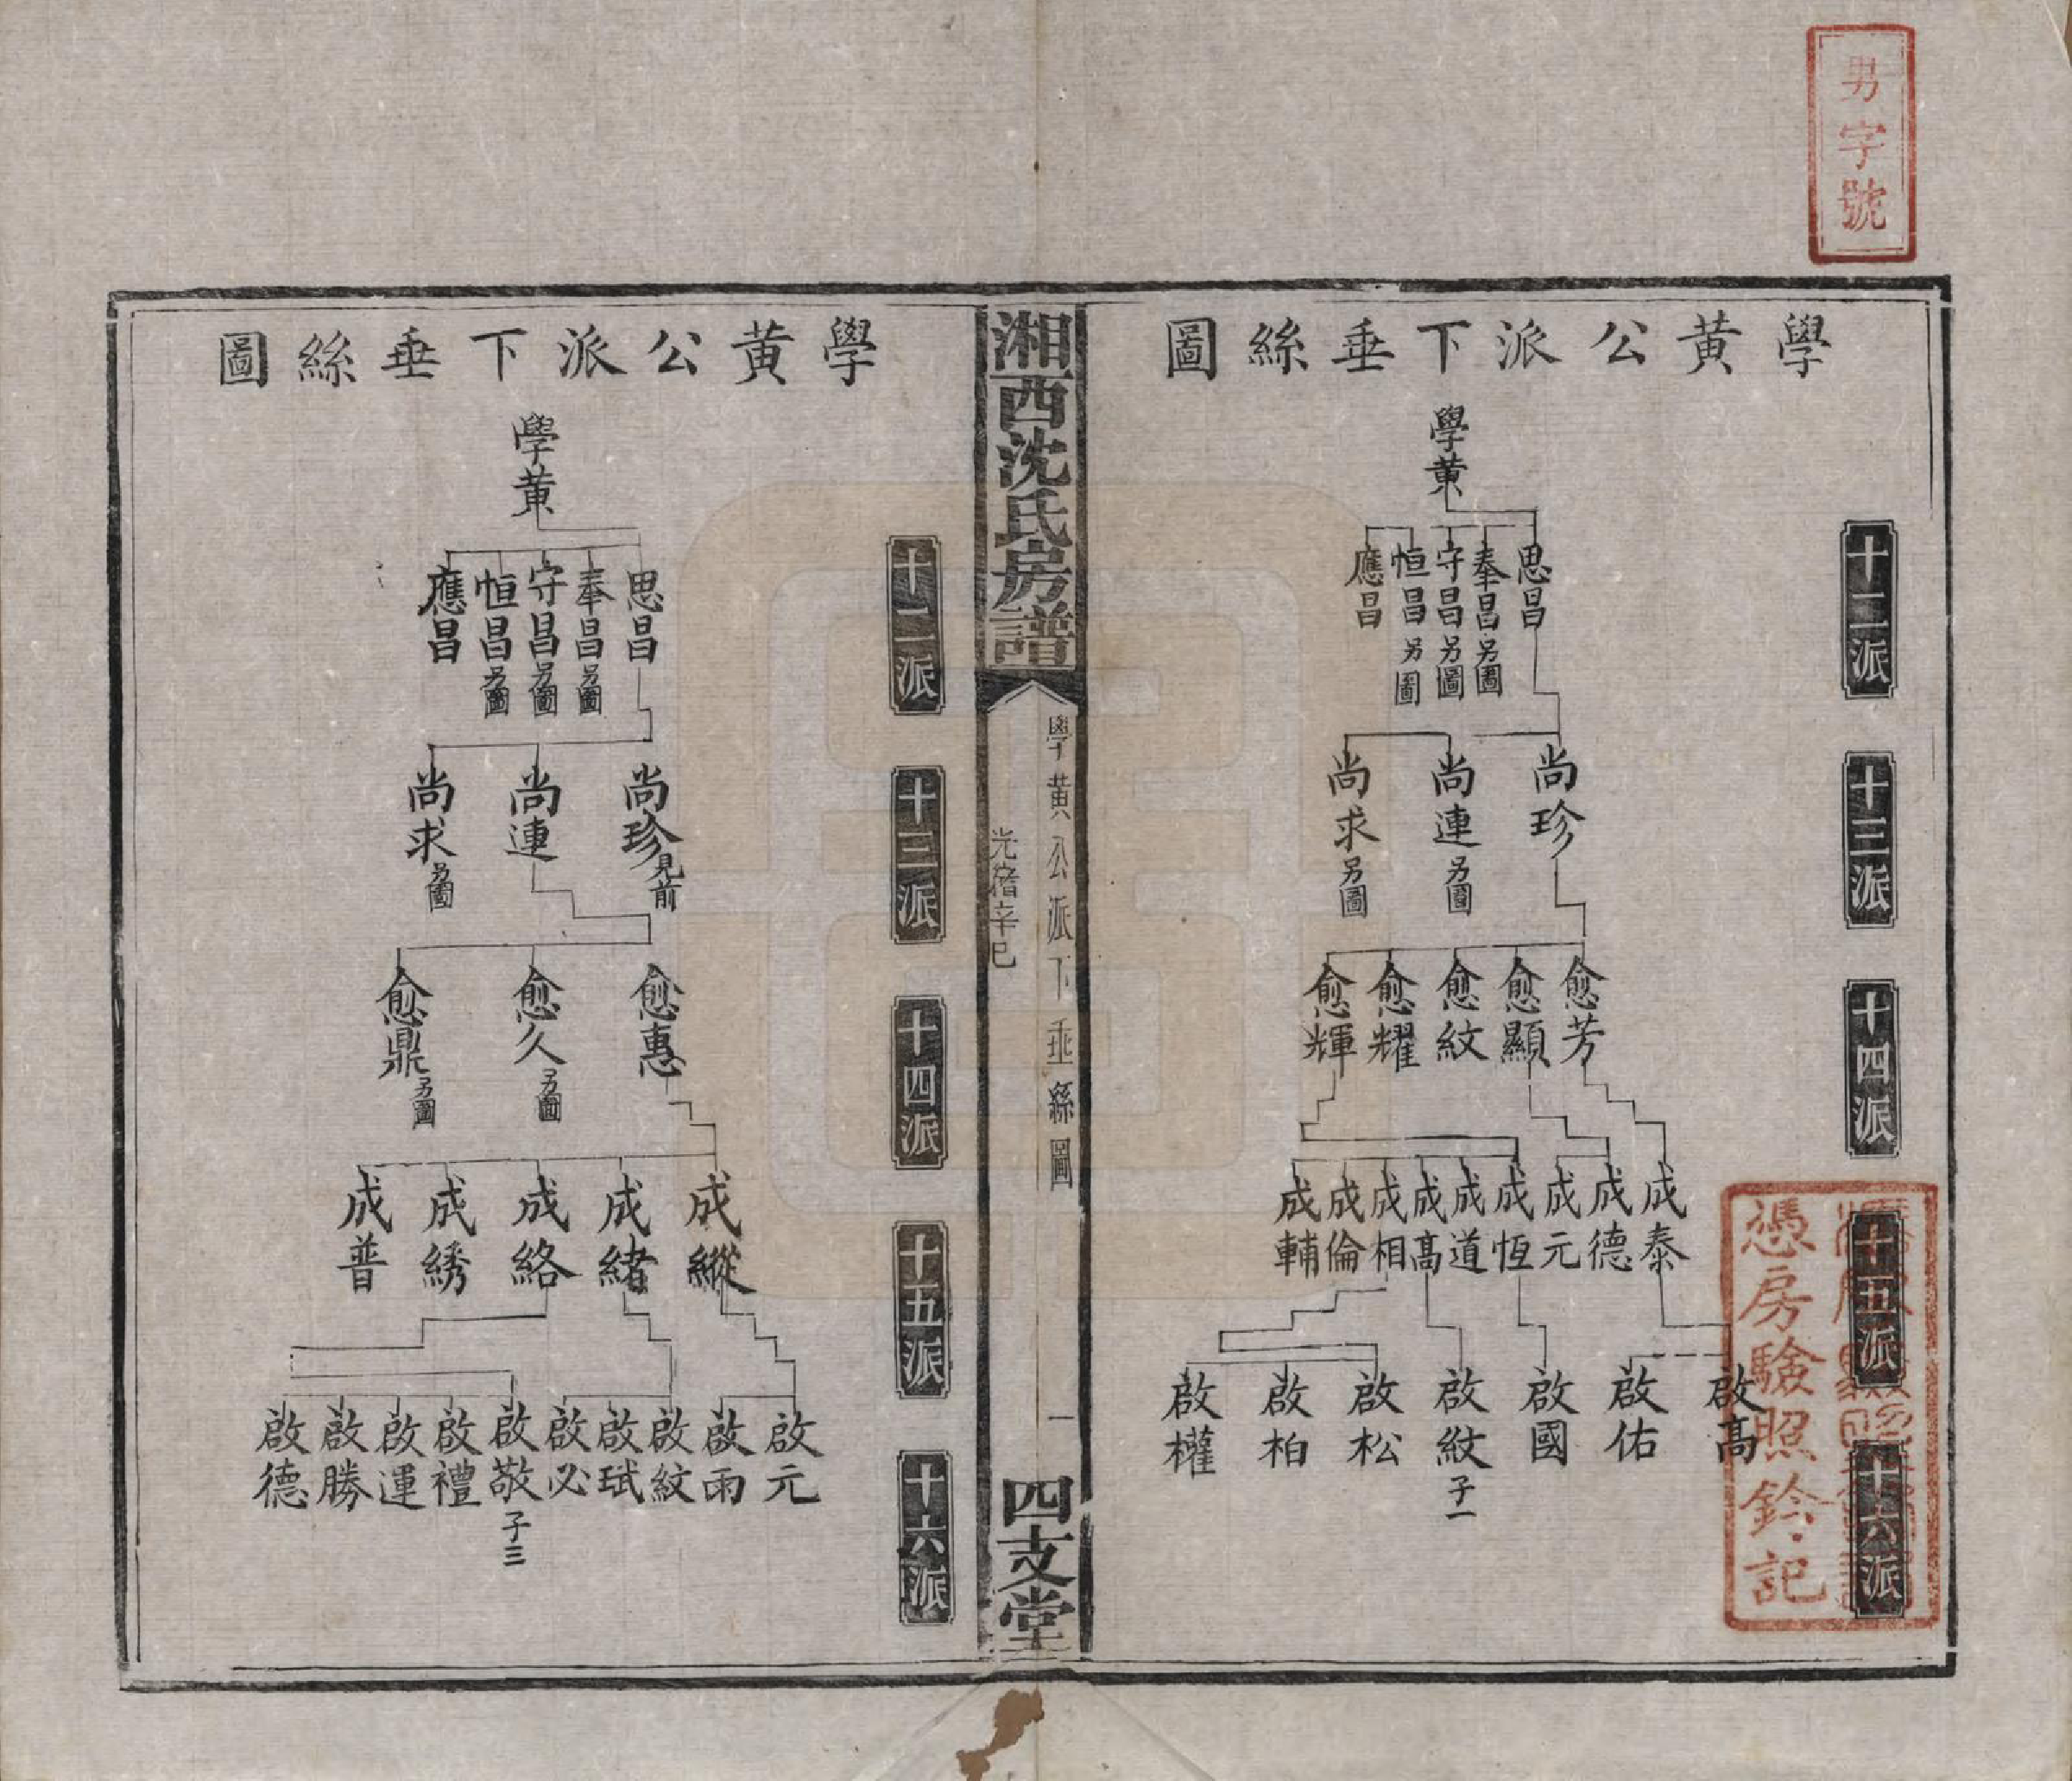 男字號
學黃公派下垂絲圖
十二派
十三派
十四派
十五派
十六派
學黃
思昌
奉昌另圖
守昌另圖
恒昌另圖
應昌
尚珍
尚連另圖
尚求另圖
愈芳
愈顯
愈紋
愈耀
愈輝
成泰
成德
成元
成恆
成道
成高
成相
成倫
成輔
啟高
啟佑
啟國
啟紋子一
啟松
啟柏
啟權
憑房驗照鈐記
湘西沈氏房譜
學黃公派下垂絲圖
光緒辛巳
一
四支堂
學黃公派下垂絲圖
十二派
十三派
十四派
十五派
十六派
學黃
思昌
奉昌另圖
守昌另圖
恒昌另圖
應昌
尚珍見前
尚連
尚求另圖
愈惠
愈久另圖
愈鼎另圖
成縱
成緒
成絡
成綉
成普
啟元
啟雨
啟紋
啟珷
啟必
啟敬子三
啟禮
啟運
啟勝
啟德